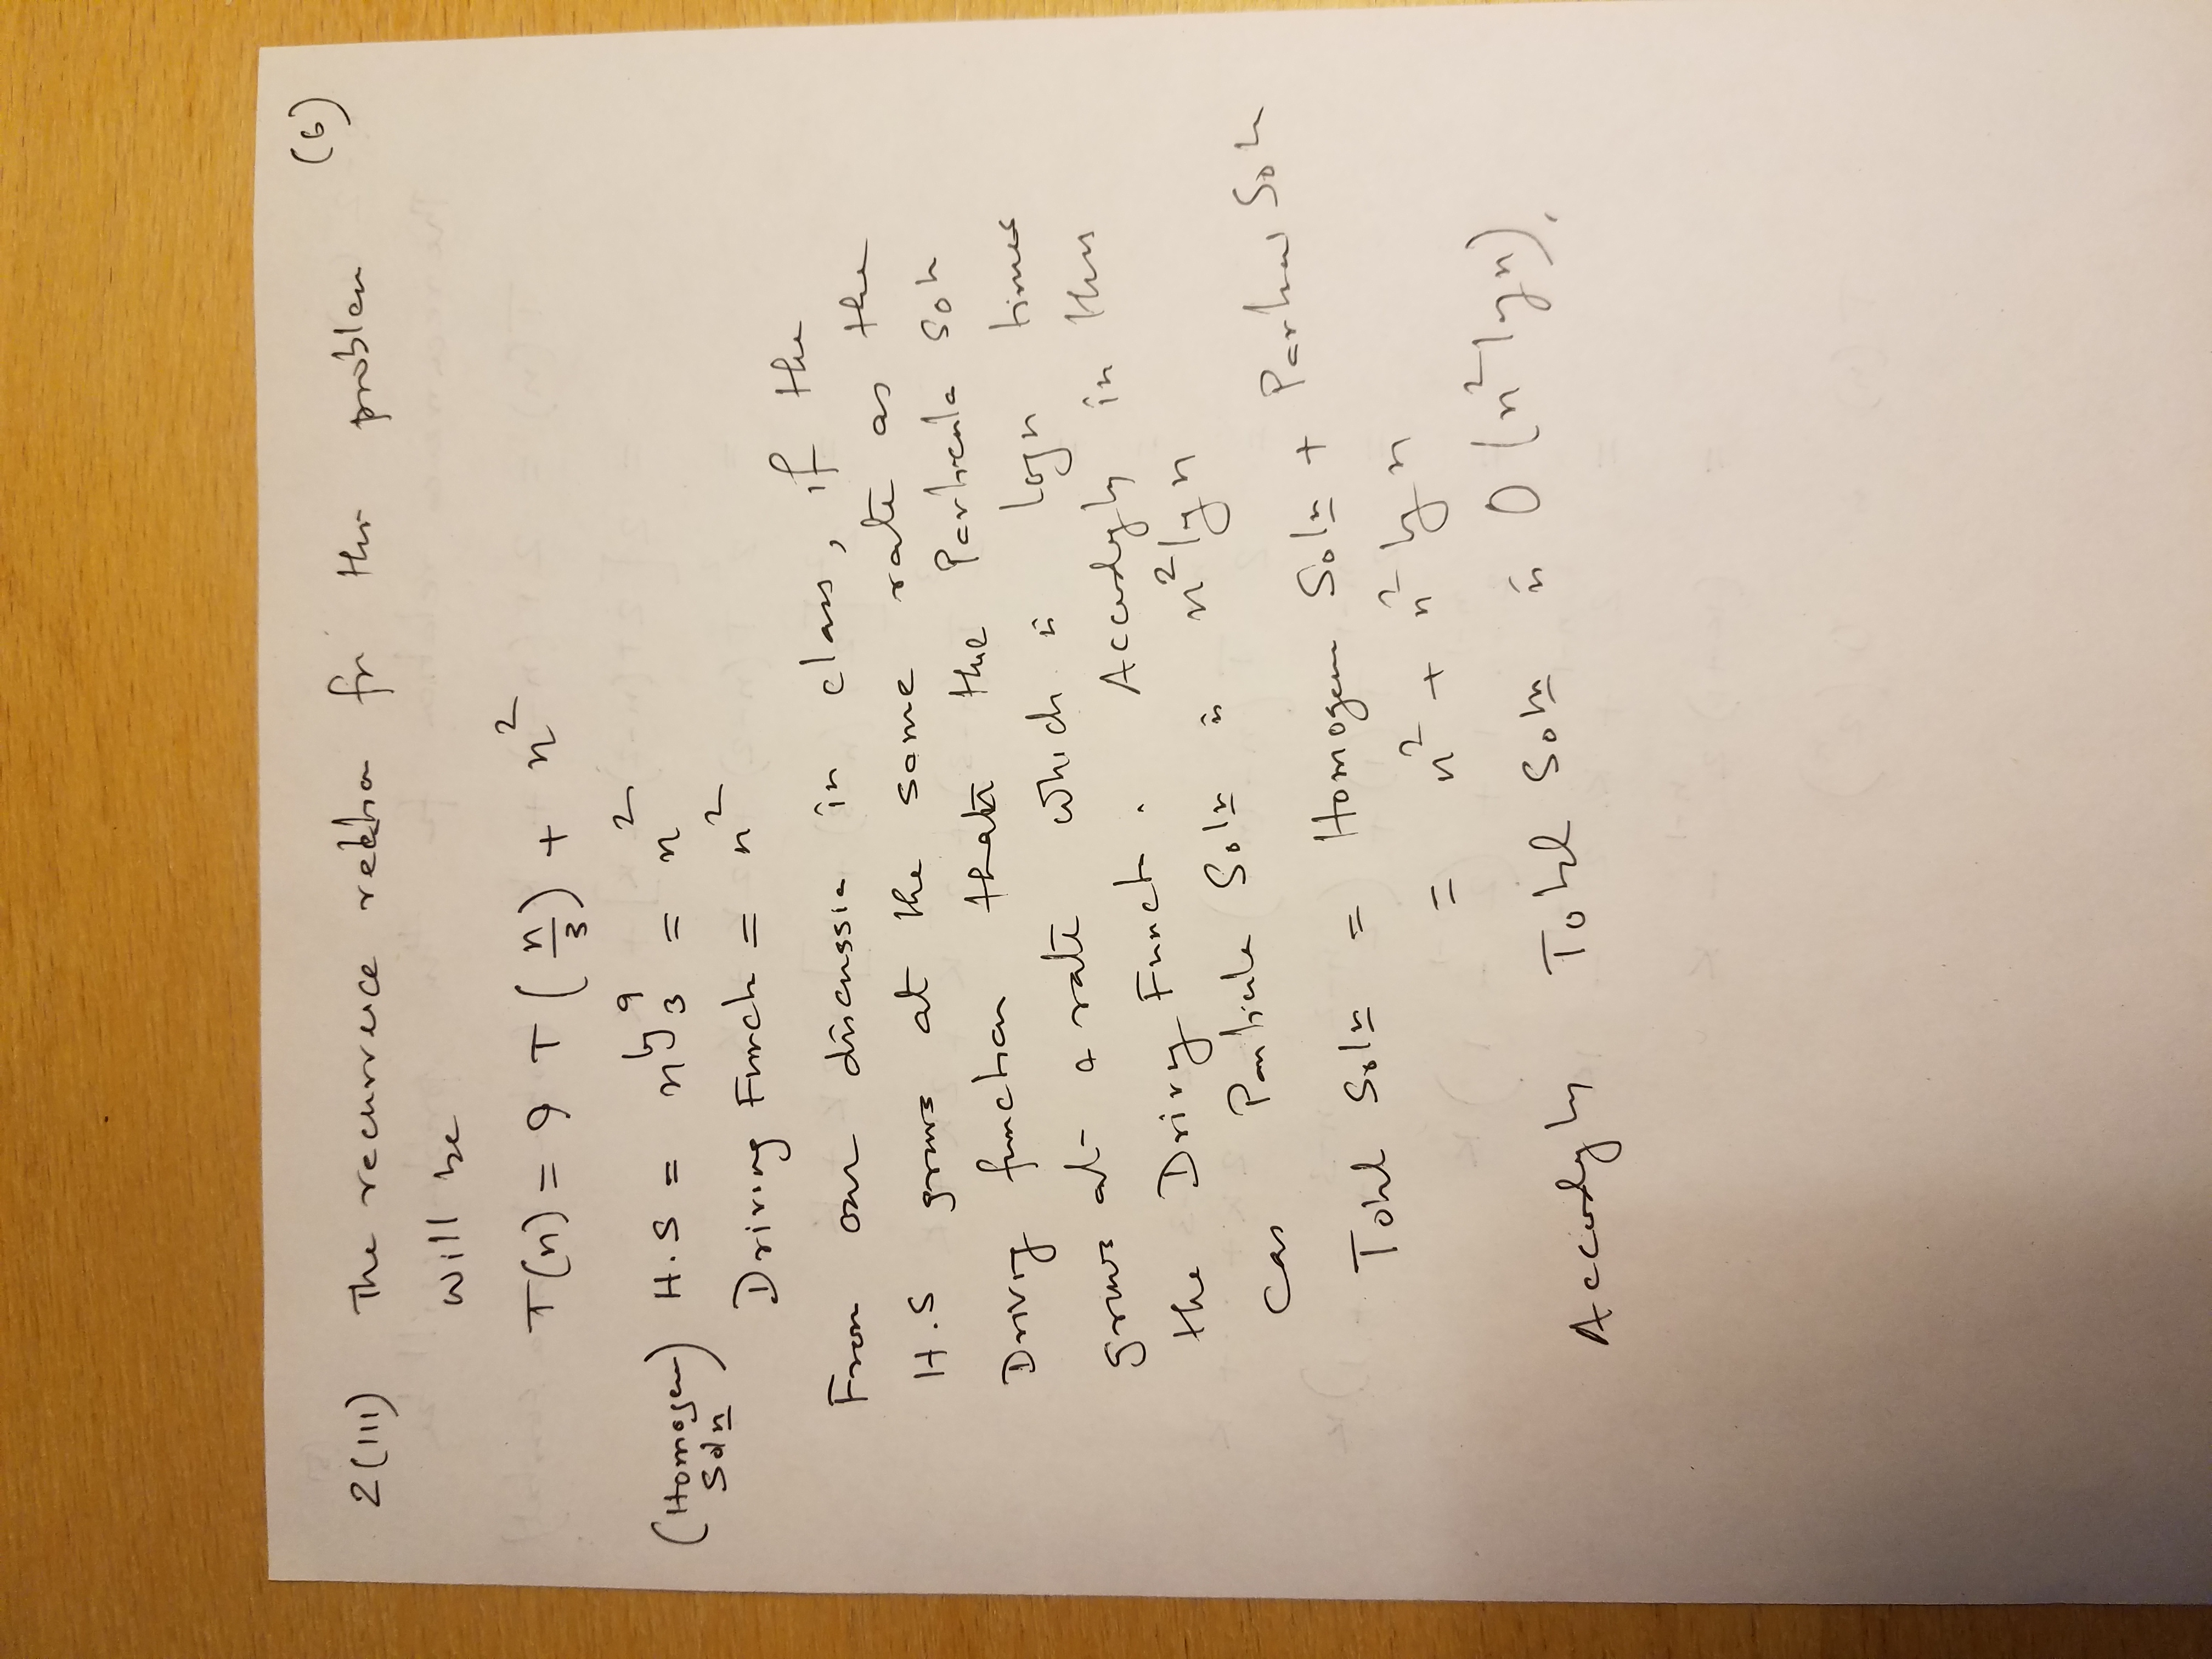 (6)
2(III) The recurrence relation for this problem
will be
T(n) = 9 T(n/3) + n²
(Homogen Soln) H.S = n^log₃9 = n²
Driving Funct = n²
From our discussion in class, if the
H.S grows at the same rate as the
Driving function than the Particular Soln
grows at a rate which is logn times
the Driving Funct. Accordingly in this
case Particular Soln is n² log n
Total Soln = Homogen Soln + Particular Soln
= n² + n² log n
Accordingly Total Soln is O(n² log n).